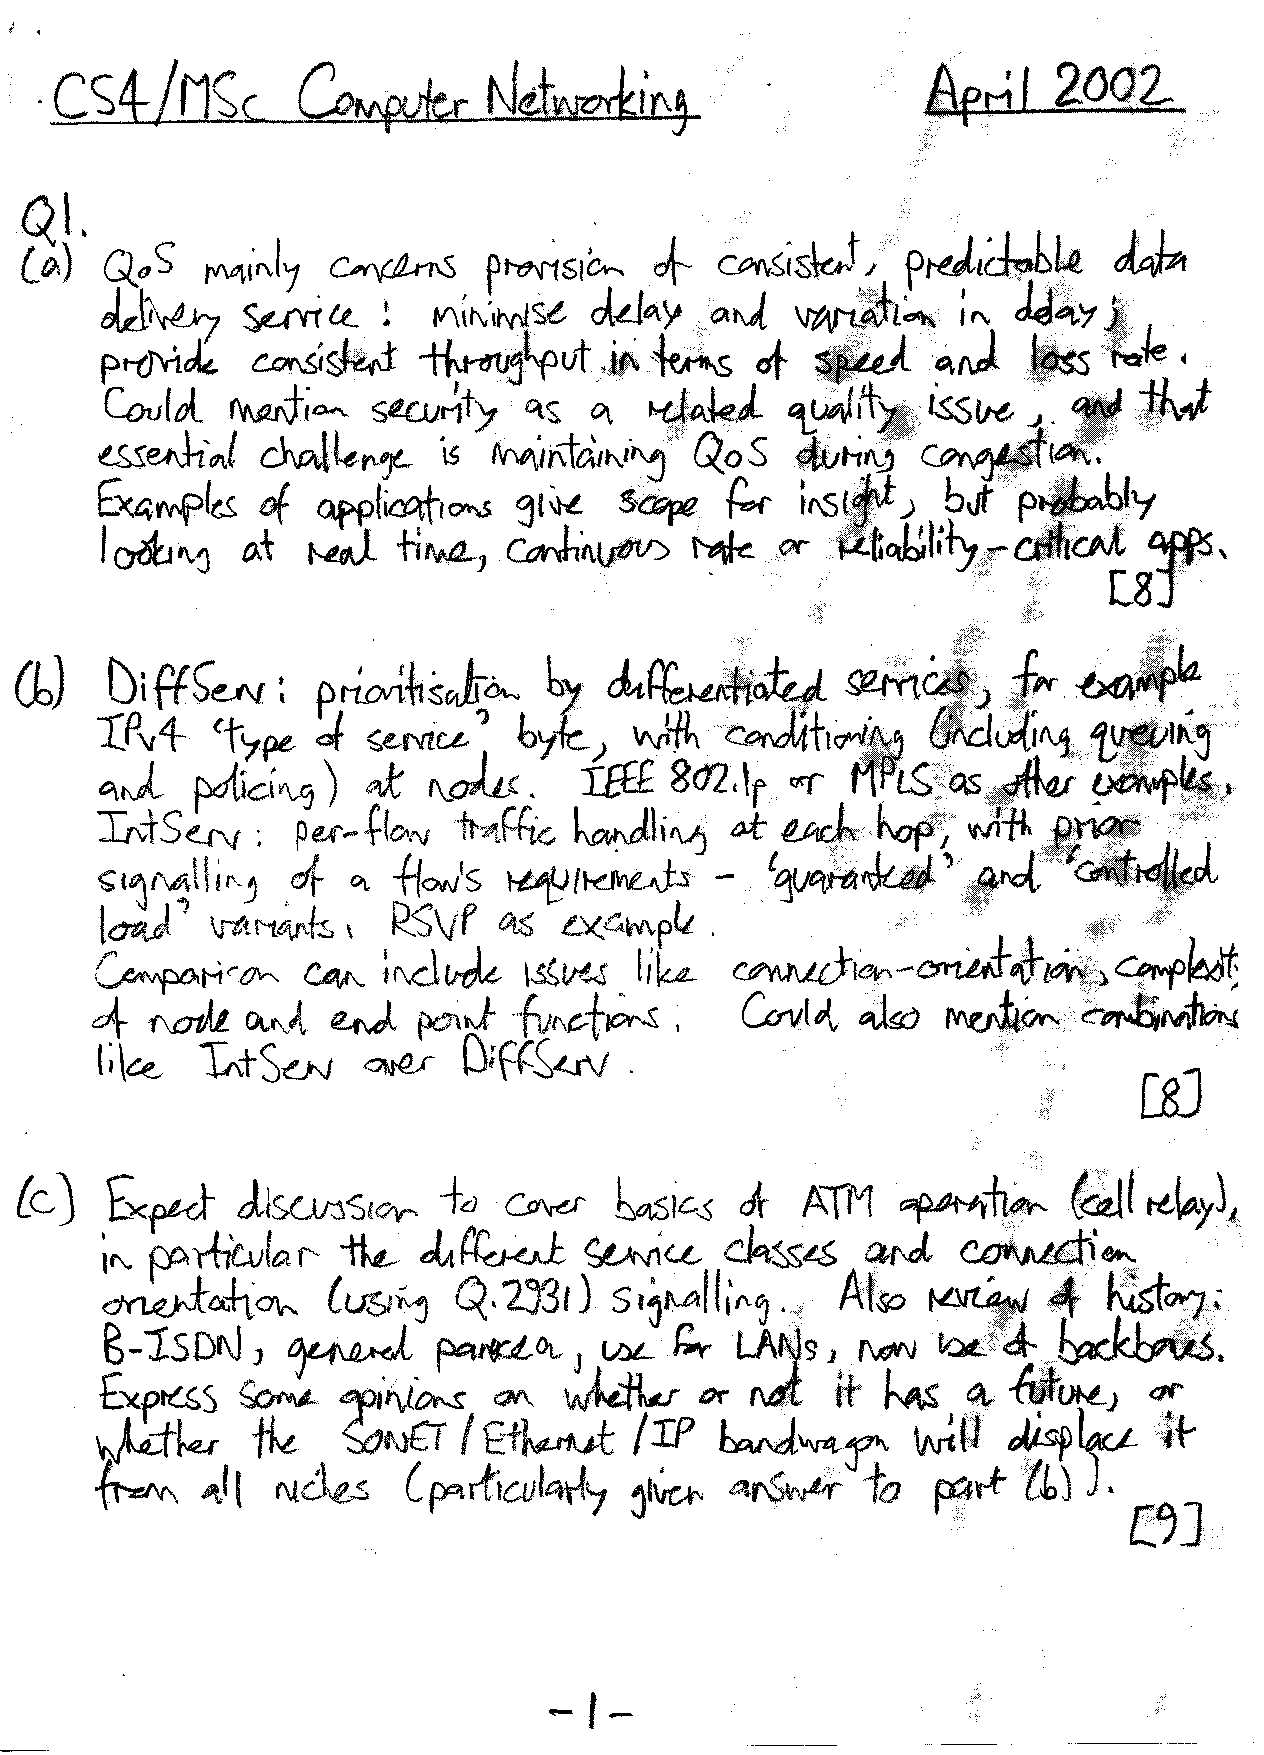 CS4/MSc Computer Networking April 2002
Q1.
(a) QoS mainly concerns provision of consistent, predictable data
delivery service: minimise delay and variation in delay;
provide consistent throughput in terms of speed and loss rate.
Could mention security as a related quality issue, and that
essential challenge is maintaining QoS during congestion.
Examples of applications give scope for insight, but probably
looking at real time, continuous rate or reliability-critical apps.
[8]
(b) DiffServ: prioritisation by differentiated services, for example
IPv4 'type of service' byte, with conditioning (including queuing
and policing) at nodes. IEEE 802.1p or MPLS as other examples.
IntServ: per-flow traffic handling at each hop, with prior
signalling of a flow's requirements - 'guaranteed' and 'controlled
load' variants. RSVP as example.
Comparison can include issues like connection-orientation, complexity
of node and end point functions. Could also mention combinations
like IntServ over DiffServ.
[8]
(c) Expect discussion to cover basics of ATM operation (cell relay),
in particular the different service classes and connection
orientation (using Q.2931) signalling. Also review of history:
B-ISDN, general panacea, use for LANs, now use of backbones.
Express some opinions on whether or not it has a future, or
whether the SONET/Ethernet/IP bandwagon will displace it
from all niches (particularly given answer to part (b)).
[9]
-1-